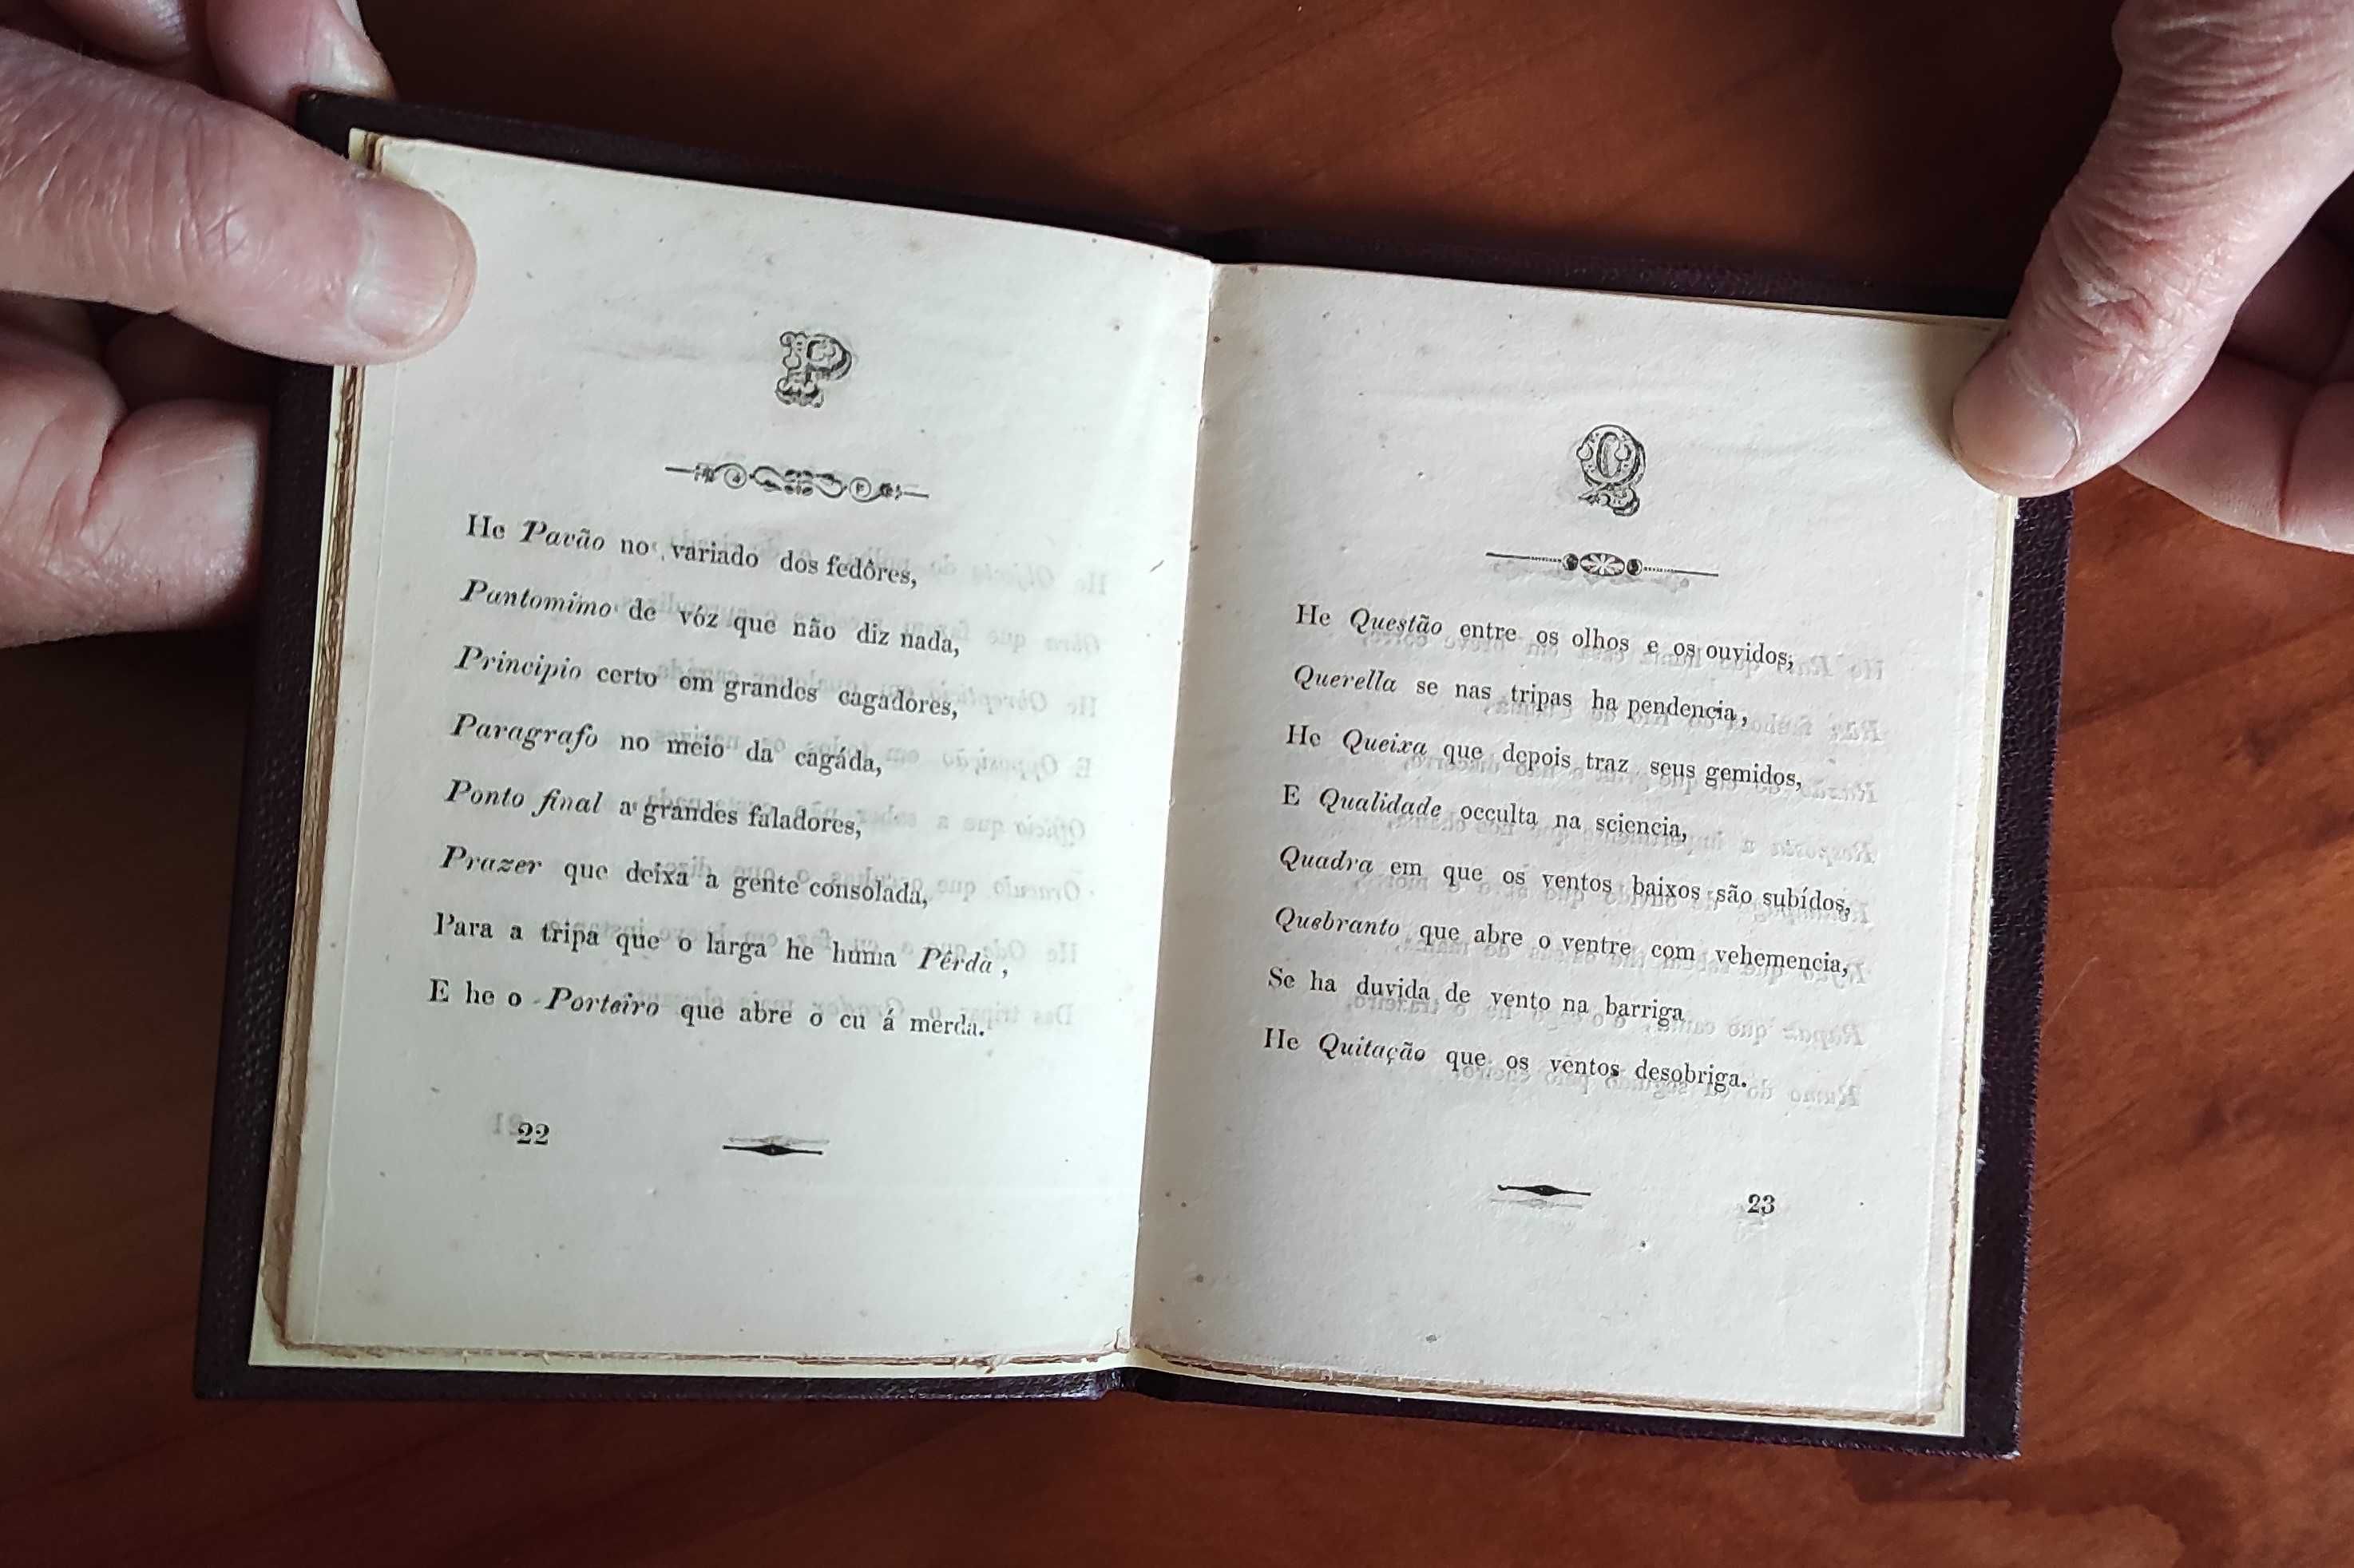 P
He Pavão no variado dos fedôres,
Pantomimo de vóz que não diz nada,
Principio certo em grandes cagadores,
Paragrafo no meio da cagáda,
Ponto final a grandes faladores,
Prazer que deixa a gente consolada,
Para a tripa que o larga he huma Pêrda,
E he o Porteiro que abre o cu á mêrda.
22
Q
He Questão entre os olhos e os ouvidos;
Querella se nas tripas ha pendencia,
He Queixa que depois traz seus gemidos,
E Qualidade occulta na sciencia,
Quadra em que os ventos baixos são subídos,
Quebranto que abre o ventre com vehemencia,
Se ha duvida de vento na barriga
He Quitação que os ventos desobriga.
23